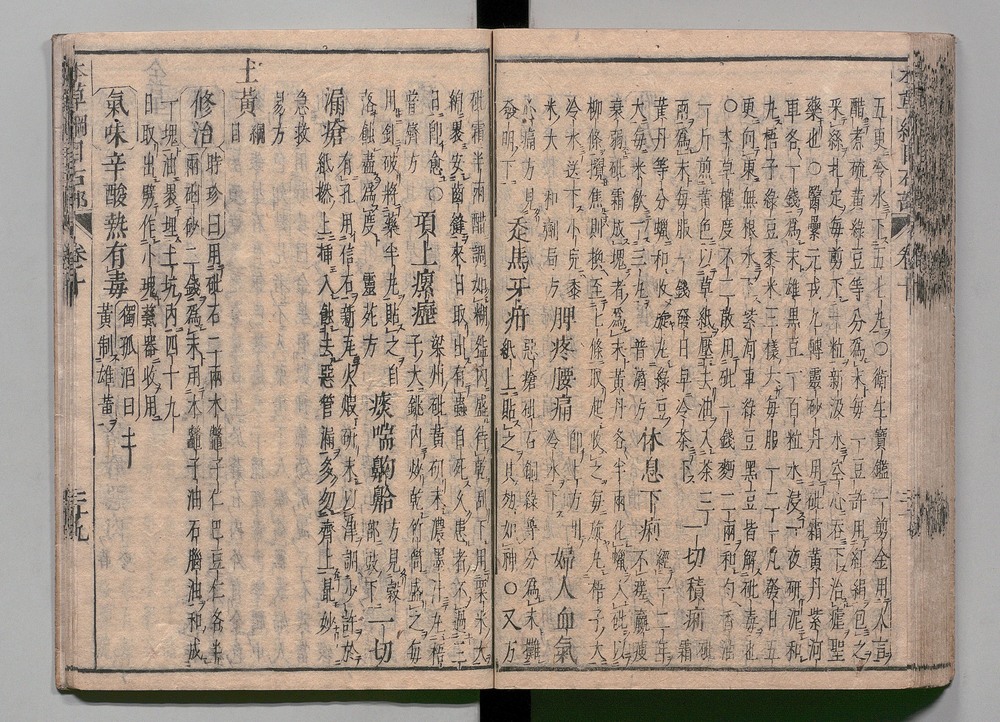 五更冷水下五七丸〇衛生寶鑑一剪金用人言
醋煮硫黃綠豆等分爲末每一豆許用紅絹包之
采絲扎定每剪下一粒新汲水空心吞下治瘧聖
藥也〇醫壘元戎九轉靈砂丹用砒霜黃丹紫河
車各一錢爲末雄黑豆一百粒水浸一夜研泥和
丸梧子綠豆黍米三樣大每服一二三丸發日五
更向東無根水下紫河車綠豆黑豆皆解砒毒也
〇本草權度不二散用砒一錢麪二兩和勻香油
一斤煎黃色以草紙壓去油入茶三
兩爲末每服一錢發日早冷茶下 一切積痢 砒霜
黃丹等分蠟和收旋丸綠豆
大每米飲一三丸 普濟方 休息下痢 經一二年不瘥羸瘦
衰弱砒霜成塊者爲末黃丹各半兩化蠟入砒以
柳條攪焦則換至七條取起收之每旋丸梧子大
冷水送下小兒黍
米大 和劑局方 脾疼腰痛 即上方用冷水下 婦人血氣
心痛方見
發明下 走馬牙疳 惡瘡砒石銅綠等分爲末攤紙上貼之其効如神〇又方
砒霜半兩醋調如糊盌內盛待乾刮下用粟米大
綿裹安齒縫來日取出有蟲自死久患者不過三
日即愈〇普濟方 項上瘰癧 信州砒黃研末濃墨汁丸梧子大銚內炒乾竹筒盛之每
用針破將藥半丸貼之自
落蝕盡爲度 靈苑方 痰喘齁䶎 方見穀部豉下 一切
漏瘡 有孔用信石新瓦火煅研末以津調少許於紙撚上插入蝕去惡管漏多勿齊上最妙
急救
易方
土黃 綱目
修治 時珍曰用砒石二兩木鼈子仁巴豆仁各半兩硇砂二錢爲末用木鼈子油石腦油和成
一塊油裹埋土坑內四十九
日取出劈作小塊甆器收用
氣味辛酸熱有毒 獨孤滔曰土黃制雄黃
本草綱目石部 卷十 二十九